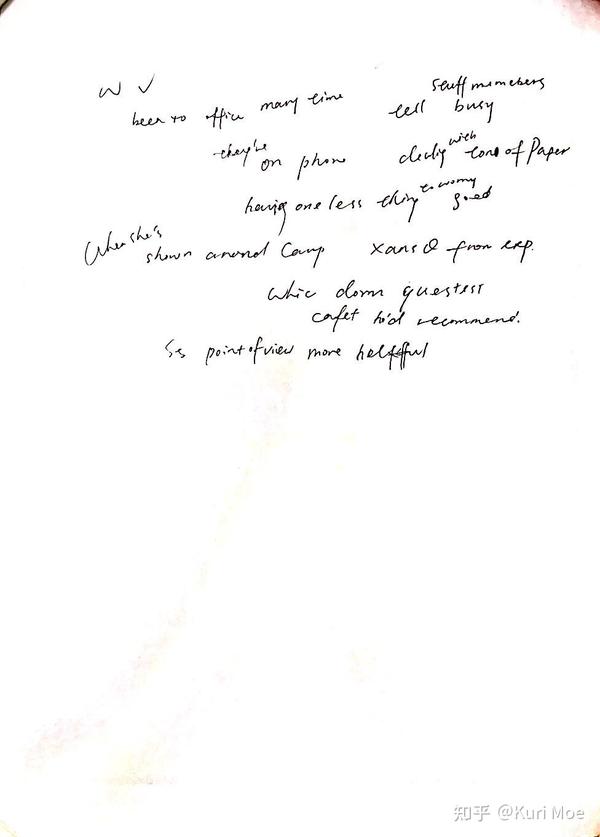 W ✓
staff memebers
been to office many time tell busy
they're on phone dealig with tons of Paper
having one less thing to worry good
When she's
shown around Camp xans Q from exp.
whic dorm quietess
cafet he'd recommend.
Ss point of view more helpful
知乎 @Kuri Moe